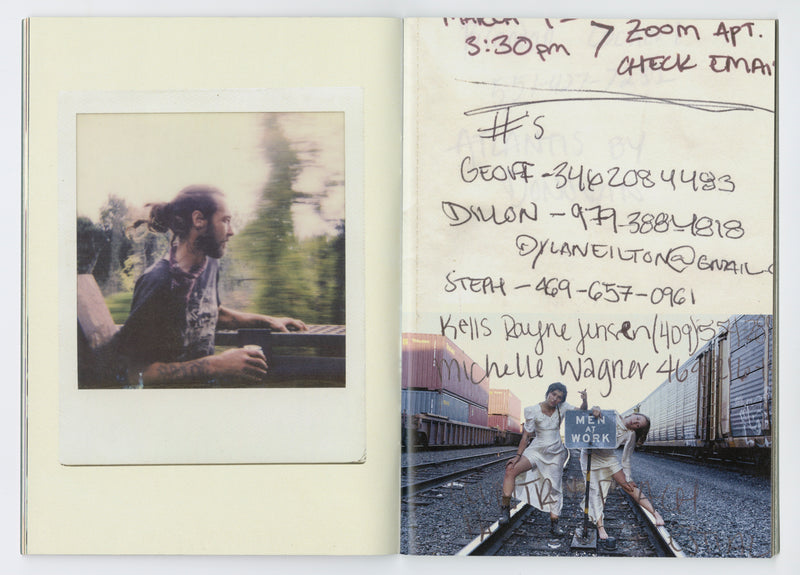 3:30pm > ZOOM APT.
CHECK EMAI
#'S
GEOFF - 3462084483
DILLON - 979-388-4818
DYLANEILTON@GMAIL.C
STEPH - 469-657-0961
Kells Rayne Jensen (409)
Michelle Wagner
MEN
AT
WORK